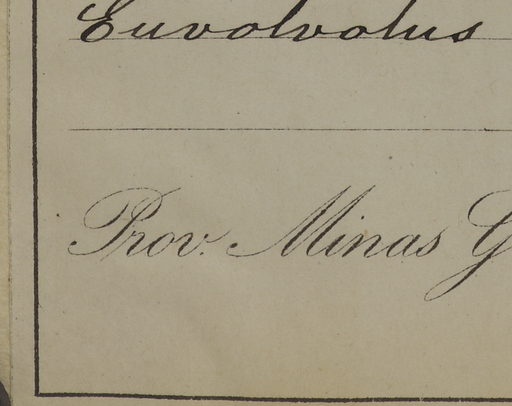 Euvolvolus
Prov. Minas G